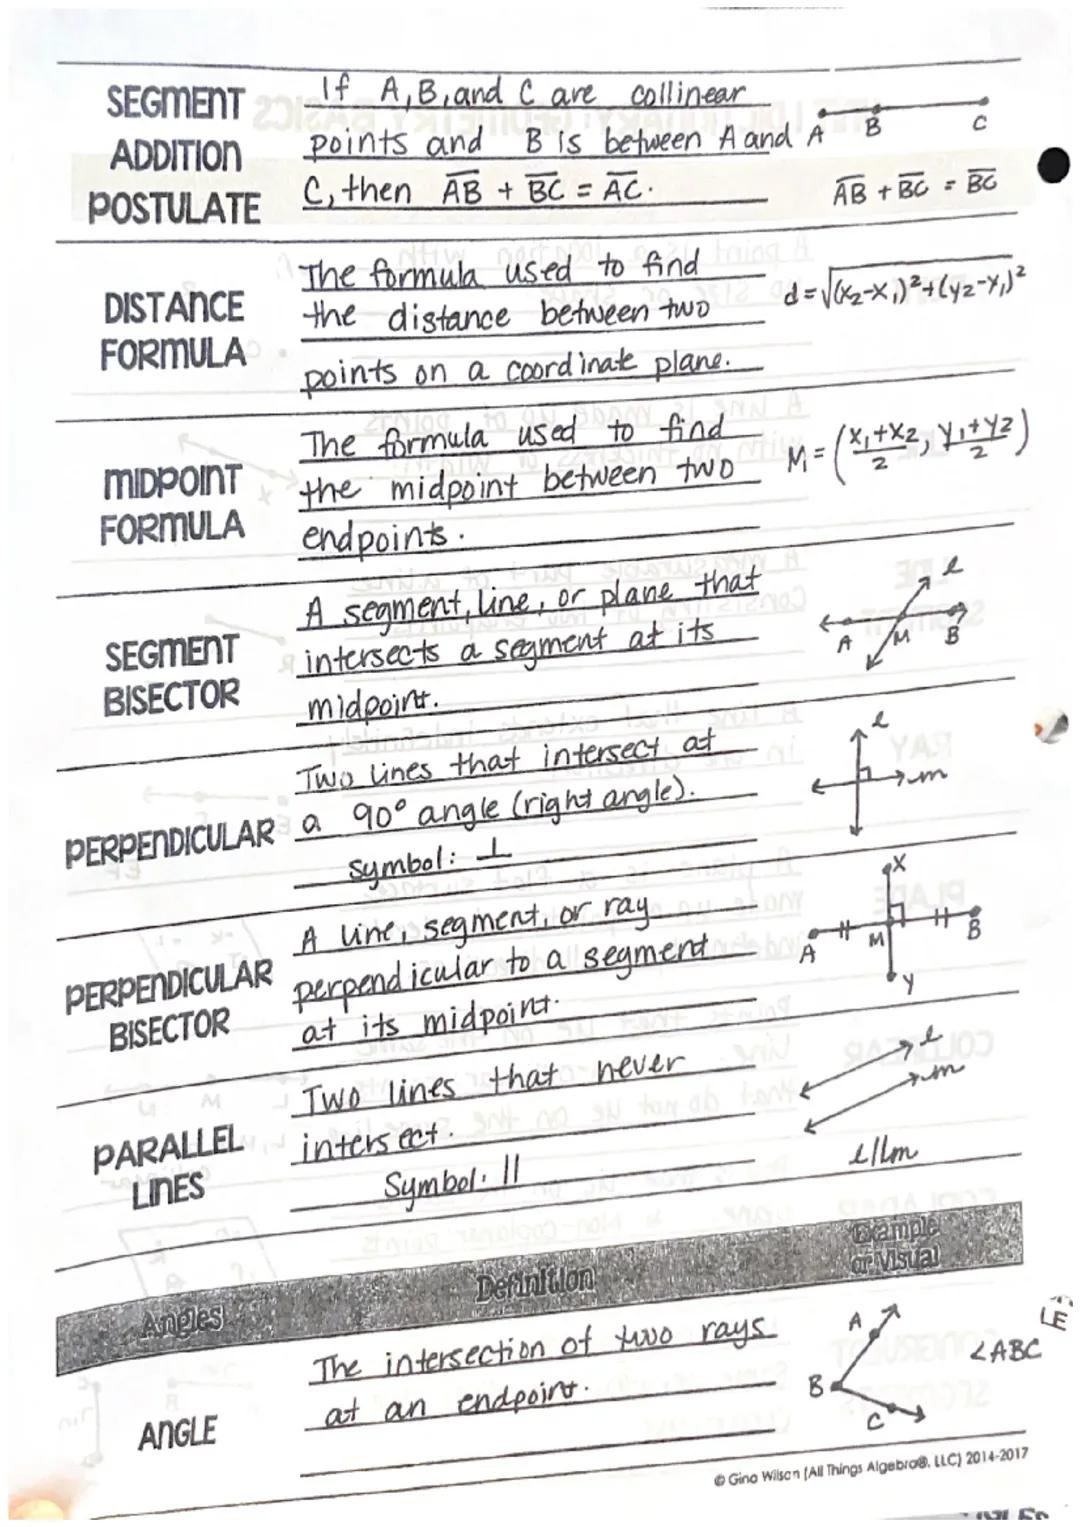 SEGMENT
ADDITION
POSTULATE
If A, B, and C are collinear
points and B is between A and
C, then AB + BC = AC.
A B C
AB + BC = BC
DISTANCE
FORMULA
The formula used to find
the distance between two
points on a coordinate plane.
d = √(x₂-x₁)²+(y₂-y₁)²
MIDPOINT
FORMULA
The formula used to find
the midpoint between two
endpoints.
M = (x₁+x₂/2, y₁+y₂/2)
SEGMENT
BISECTOR
A segment, line, or plane that
intersects a segment at its
midpoint.
l
A M B
PERPENDICULAR
Two lines that intersect at
a 90° angle (right angle).
symbol: ⊥
l
m
PERPENDICULAR
BISECTOR
A line, segment, or ray
perpendicular to a segment
at its midpoint.
X
A M B
Y
PARALLEL
LINES
Two lines that never
intersect.
Symbol: ||
l
m
l||m
Angles
Definition
Example
or Visual
ANGLE
The intersection of two rays
at an endpoint.
A
B
C
∠ABC
© Gina Wilson (All Things Algebra®, LLC) 2014-2017